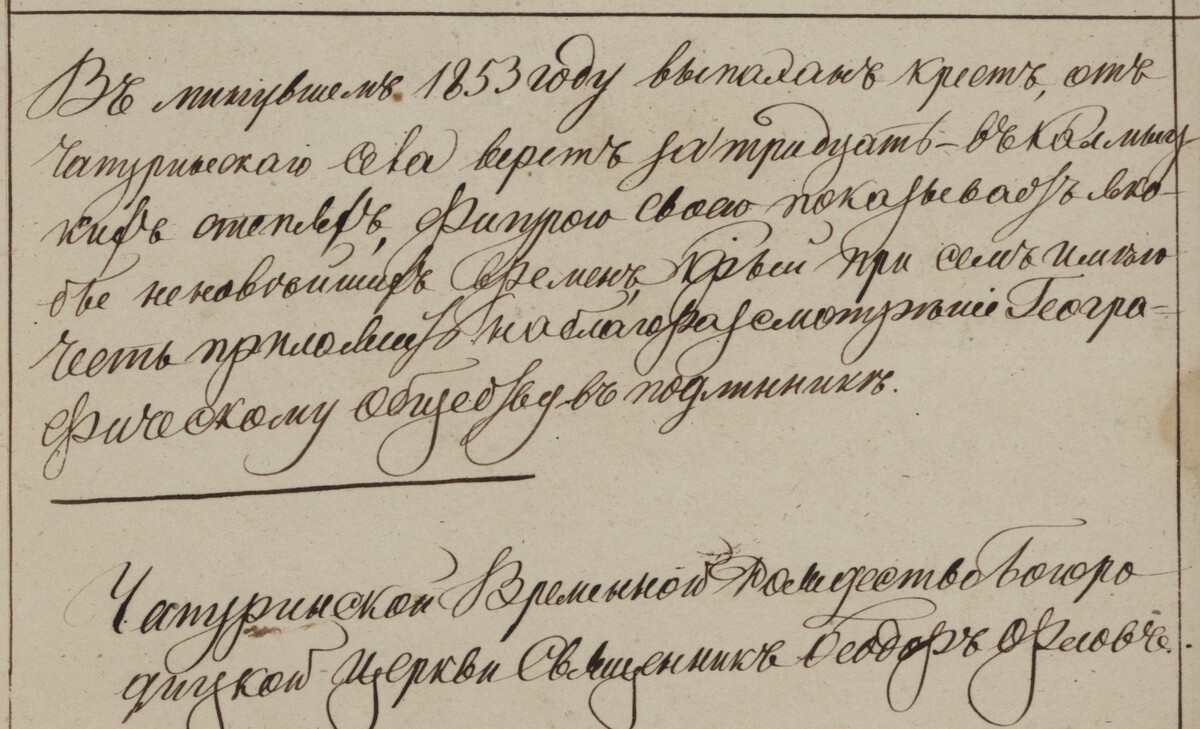 Въ минувшемъ 1853 году выпаханъ крестъ, отъ
Чапуринскаго Села верстъ за тридцать – въ Калмыц
кихъ степяхъ, Фигурою своею показываетъ яко-
бы неновѣйшихъ временъ, крый при семъ имѣю
честь приложить на благоразсмотрѣніе Геогра-
фическому Обществу въ подлинникѣ.
Чапуринской Временной Рождество Богоро
дицкой Церкви Священникъ Ѳеодоръ Орловъ.